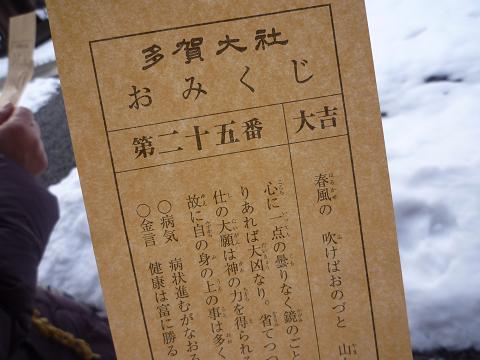 多賀大社
おみくじ
第二十五番
大吉
春風の 吹けばおのづと 山
心に一点の曇りなく鏡のこと
りあれば大凶なり。省てつつ
仕の大願は神の力を得られる
故に自の身の上の事は多く
〇病気 病状進むがなおる
〇金言 健康は富に勝る